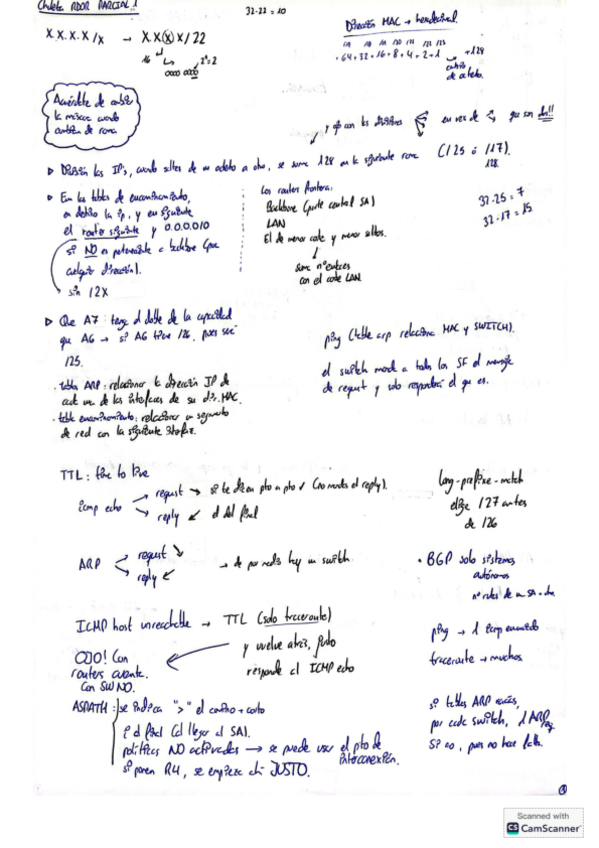 Chuleta RDOR PARCIAL 1
32-22 = 10
Dirección MAC → hexadecimal.
X.X.X.X/x → X.X(X)X/22
16 2²=2
0000 0000
+64+32+16+8+4+2+1 +128
Acuérdate de
la máscara cuando
de rama
y
en vez de que son dos!!
▷ Dividir las IPs, cuando saltes de un octeto a otro, se suma 128 en la siguiente rama (/25 ó /17).
128.
▷ En las tablas de encaminamiento,
en destino la ip, y en siguiente
el router siguiente y 0.0.0.0/0
si NO es perteneciente a backbone (pon
cualquier dirección).
sin /2X
Los routers frontera:
Backbone (parte central SA)
LAN
El de menor coste y menor saltos.
suma nº enlaces
con el coste LAN
32-25 = 7
32-17 = 15
▷ Que A7: tenga el doble de la capacidad
que A6 → si A6 tiene /26, pues será
/25.
ping (tabla arp relaciona MAC y SWITCH).
el switch manda a todos los SF el mensaje
de request y solo responderá el que es.
· tabla ARP: relacionar la dirección IP de
cada una de las interfaces de su dir. MAC.
· tabla encaminamiento: relacionar un segmento
de red con la siguiente interfaz.
TTL: time to live
icmp echo
request → si te dicen pto a pto ✓ (no mandes el reply).
reply ↙ el del final
long-prefixe-match
elige /27 antes
de /26
ARP
request ↘
reply ↙
→ de por medio hay un switch.
• BGP solo sistemas
autónomos
ICMP host unreachable → TTL (solo traceroute)
y vuelve atrás, justo
responde el ICMP echo
OJO! Con
routers cuenta.
Con SW NO.
ping → 1 icmp enviado
traceroute → muchos
ASPATH: se indica ">" el camino + corto
i el final (al llegar al SA).
políticas NO activadas → se puede usar el pto de
interconexión.
si ponen R4, se empieza ahí JUSTO.
si tablas ARP vacías,
por cada switch, 1 ARP req
Si no, pues no hace falta.
Scanned with
CS CamScanner